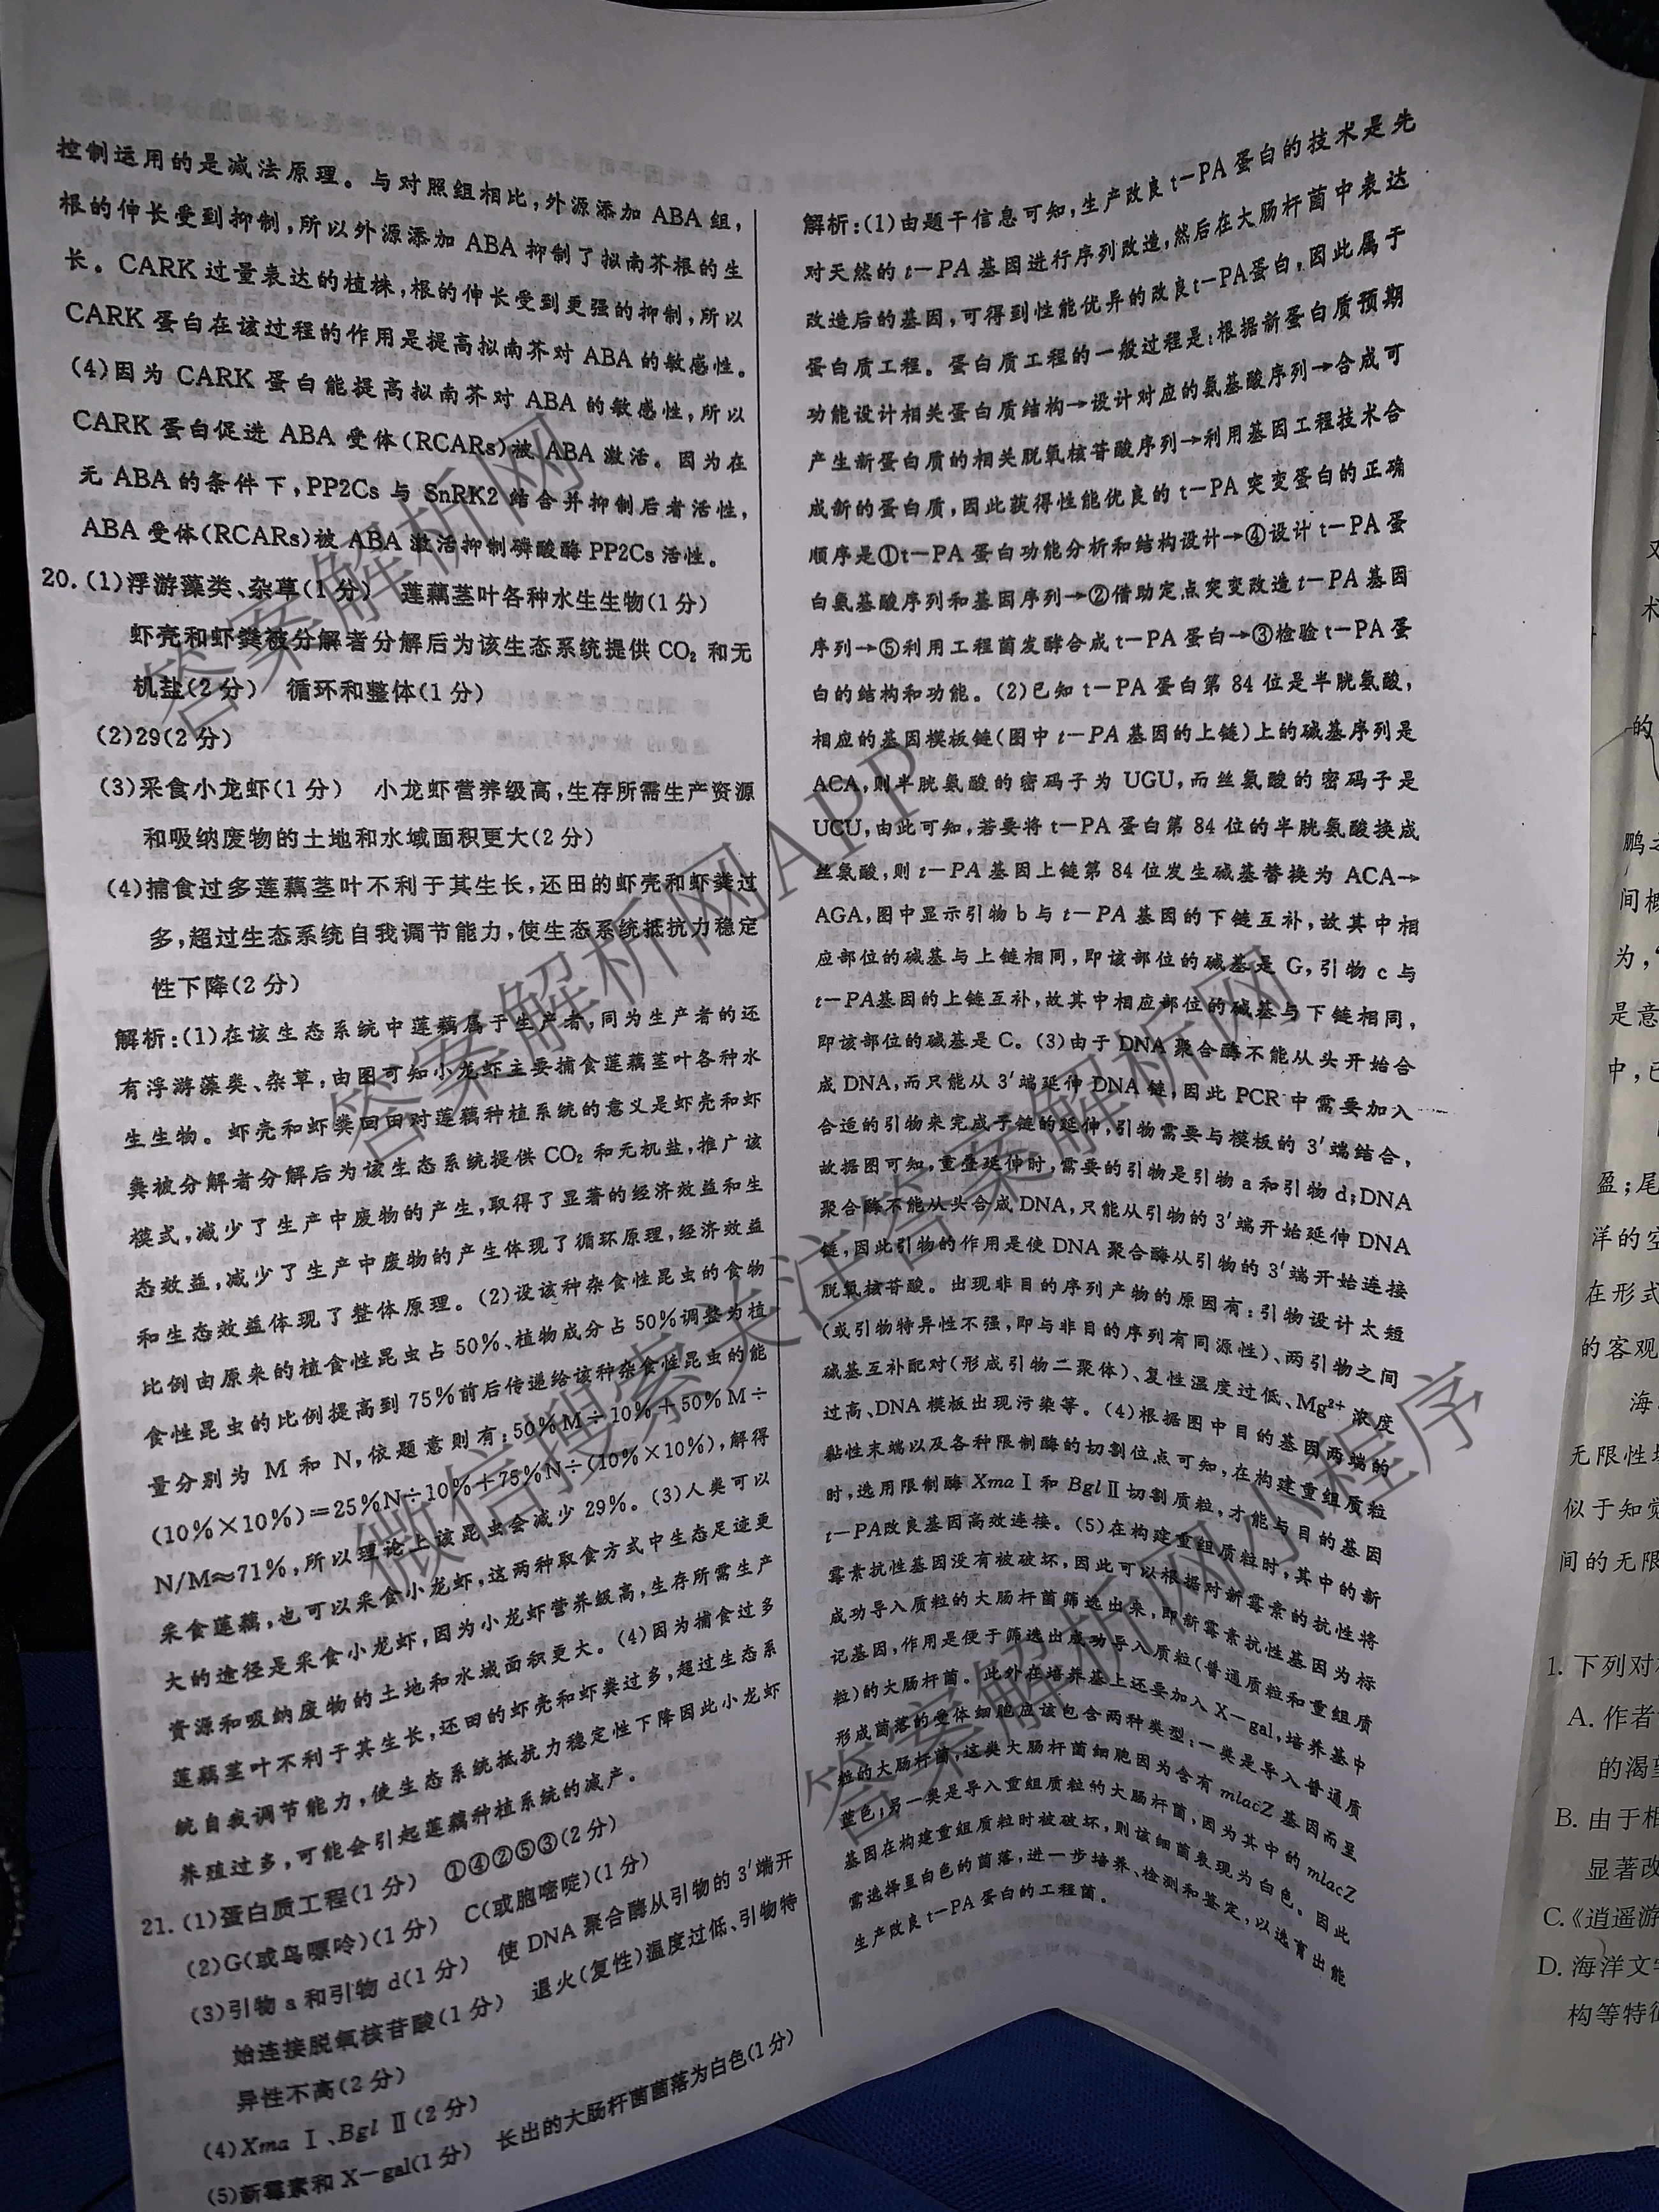 控制运用的是减法原理。与对照组相比,外源添加 ABA 组,
根的伸长受到抑制,所以外源添加 ABA 抑制了拟南芥根的生
长。CARK 过量表达的植株,根的伸长受到更强的抑制,所以
CARK 蛋白在该过程的作用是提高拟南芥对 ABA 的敏感性。
(4)因为 CARK 蛋白能提高拟南芥对 ABA 的敏感性,所以
CARK 蛋白促进 ABA 受体(RCARs)被 ABA 激活。因为在
无 ABA 的条件下,PP2Cs 与 SnRK2 结合并抑制后者活性,
ABA 受体(RCARs)被 ABA 激活抑制磷酸酶 PP2Cs 活性。
20. (1)浮游藻类、杂草(1 分) 莲藕茎叶各种水生生物(1 分)
虾壳和虾粪被分解者分解后为该生态系统提供 CO₂ 和无
机盐(2 分) 循环和整体(1 分)
(2)29(2 分)
(3)采食小龙虾(1 分) 小龙虾营养级高,生存所需生产资源
和吸纳废物的土地和水域面积更大(2 分)
(4)捕食过多莲藕茎叶不利于其生长,还田的虾壳和虾粪过
多,超过生态系统自我调节能力,使生态系统抵抗力稳定
性下降(2 分)
解析:(1)在该生态系统中莲藕属于生产者,同为生产者的还
有浮游藻类、杂草,由图可知小龙虾主要捕食莲藕茎叶各种水
生生物。虾壳和虾粪回田对莲藕种植系统的意义是虾壳和虾
粪被分解者分解后为该生态系统提供 CO₂ 和无机盐,推广该
模式,减少了生产中废物的产生,取得了显著的经济效益和生
态效益,减少了生产中废物的产生体现了循环原理,经济效益
和生态效益体现了整体原理。(2)设该种杂食性昆虫的食物
比例由原来的植食性昆虫占 50%、植物成分占 50%调整为植
食性昆虫的比例提高到 75%前后传递给该种杂食性昆虫的能
量分别为 M 和 N,依题意则有:50%M÷10%+50%M÷
(10%×10%)=25%N÷10%+75%N÷(10%×10%),解得
N/M≈71%,所以理论上该昆虫会减少 29%。(3)人类可以
采食莲藕,也可以采食小龙虾,这两种取食方式中生态足迹更
大的途径是采食小龙虾,因为小龙虾营养级高,生存所需生产
资源和吸纳废物的土地和水域面积更大。(4)因为捕食过多
莲藕茎叶不利于其生长,还田的虾壳和虾粪过多,超过生态系
统自我调节能力,使生态系统抵抗力稳定性下降因此小龙虾
养殖过多,可能会引起莲藕种植系统的减产。
21. (1)蛋白质工程(1 分) ①④②⑤③(2 分)
(2)G(或鸟嘌呤)(1 分) C(或胞嘧啶)(1 分)
(3)引物 a 和引物 d(1 分) 使 DNA 聚合酶从引物的 3′端开
始连接脱氧核苷酸(1 分) 退火(复性)温度过低、引物特
异性不高(2 分)
(4)Xma Ⅰ、Bgl Ⅱ(2 分)
(5)新霉素和 X-gal(1 分) 长出的大肠杆菌菌落为白色(1 分)
解析:(1)由题干信息可知,生产改良 t-PA 蛋白的技术是先
对天然的 t-PA 基因进行序列改造,然后在大肠杆菌中表达
改造后的基因,可得到性能优异的改良t-PA蛋白,因此属于
蛋白质工程。蛋白质工程的一般过程是:根据新蛋白质预期
功能设计相关蛋白质结构→设计对应的氨基酸序列→合成可
产生新蛋白质的相关脱氧核苷酸序列→利用基因工程技术合
成新的蛋白质,因此获得性能优良的 t-PA 突变蛋白的正确
顺序是①t-PA 蛋白功能分析和结构设计→④设计 t-PA 蛋
白氨基酸序列和基因序列→②借助定点突变改造 t-PA 基因
序列→⑤利用工程菌发酵合成 t-PA 蛋白→③检验 t-PA 蛋
白的结构和功能。(2)已知 t-PA 蛋白第 84 位是半胱氨酸,
相应的基因模板链(图中 t-PA 基因的上链)上的碱基序列是
ACA,则半胱氨酸的密码子为 UGU,而丝氨酸的密码子是
UCU,由此可知,若要将 t-PA 蛋白第 84 位的半胱氨酸换成
丝氨酸,则 t-PA 基因上链第 84 位发生碱基替换为 ACA→
AGA,图中显示引物 b 与 t-PA 基因的下链互补,故其中相
应部位的碱基与上链相同,即该部位的碱基是 G,引物 c 与
t-PA基因的上链互补,故其中相应部位的碱基与下链相同,
即该部位的碱基是 C。(3)由于 DNA 聚合酶不能从头开始合
成 DNA,而只能从 3′端延伸 DNA 链,因此 PCR 中需要加入
合适的引物来完成子链的延伸,引物需要与模板的 3′端结合,
故据图可知,重叠延伸时,需要的引物是引物 a 和引物 d;DNA
聚合酶不能从头合成 DNA,只能从引物的 3′端开始延伸 DNA
链,因此引物的作用是使 DNA 聚合酶从引物的 3′端开始连接
脱氧核苷酸。出现非目的序列产物的原因有:引物设计太短
(或引物特异性不强,即与非目的序列有同源性)、两引物之间
碱基互补配对(形成引物二聚体)、复性温度过低、Mg²⁺ 浓度
过高、DNA 模板出现污染等。(4)根据图中目的基因两端的
黏性末端以及各种限制酶的切割位点可知,在构建重组质粒
时,选用限制酶 Xma Ⅰ 和 Bgl Ⅱ 切割质粒,才能与目的基因
t-PA改良基因高效连接。(5)在构建重组质粒时,其中的新
霉素抗性基因没有被破坏,因此可以根据对新霉素的抗性将
成功导入质粒的大肠杆菌筛选出来,即新霉素抗性基因为标
记基因,作用是便于筛选出成功导入质粒(普通质粒和重组质
粒)的大肠杆菌。此外在培养基上还要加入 X-gal,培养基中
形成菌落的受体细胞应该包含两种类型:一类是导入普通质
粒的大肠杆菌,这类大肠杆菌细胞因为含有 mlacZ 基因而呈
蓝色;另一类是导入重组质粒的大肠杆菌,因为其中的 mlacZ
基因在构建重组质粒时被破坏,则该细菌表现为白色。因此
需选择呈白色的菌落,进一步培养、检测和鉴定,以选育出能
生产改良 t-PA 蛋白的工程菌。
答案解析网
答案解析网APP
微信搜索关注答案解析网
答案解析网小程序
的
间概
为,
是意
中,已
盈;尾
洋的空
在形式
的客观
海
无限性
似于知觉
间的无限
1. 下列对
A. 作者
的渴望
B. 由于相
显著改
C.《逍遥游
D. 海洋文学
构等特征